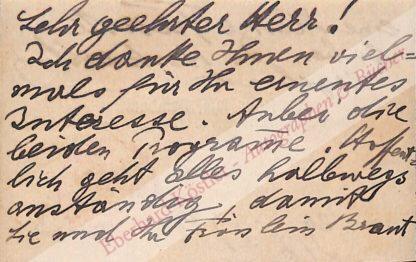 Sehr geehrter Herr!
Ich danke Ihnen viel=
mals für Ihr erneutes
Interesse. Anbei die
beiden Programme. Hoffent=
lich geht alles halbwegs
anständig, damit
Sie und Ihr Fräulein Braut
Eberhard Köstler - Autographen & Bücher